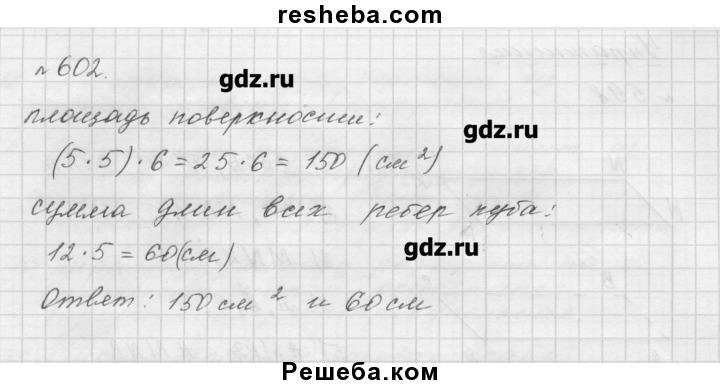 resheba.com
№ 602.
gdz.ru
площадь поверхности:
gdz.ru
(5·5)·6=25·6=150 (см²)
сумма длин всех ребер куба:
12·5=60(см)
gdz.ru
Ответ: 150 см² и 60 см
Решеба.com